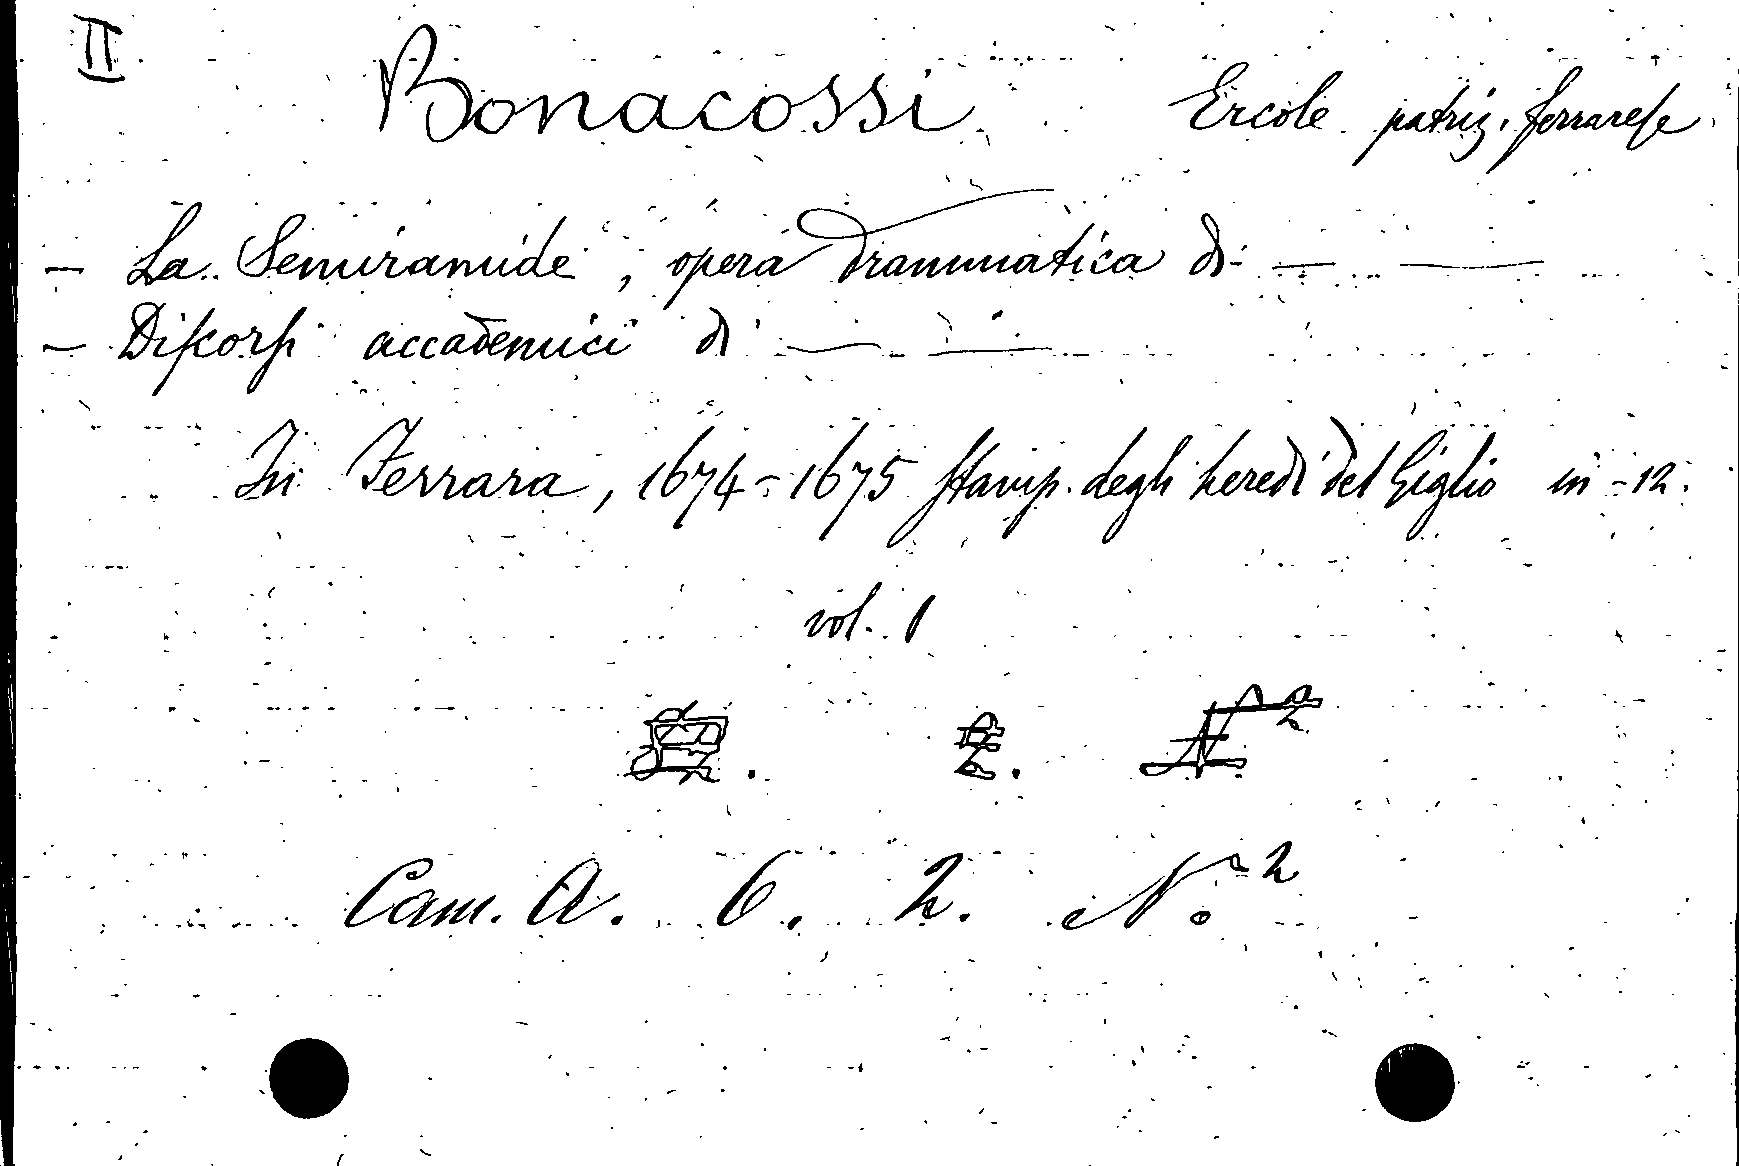 II
Bonacossi Ercole patriz. ferrarese
- La Semiramide, opera drammatica di — —
- Discorsi accademici di — —
In Ferrara, 1674-1675 Stamp. degli heredi del Giglio in-12.
vol. 1
2. N 2
Cam. A. 6. 2. N.° 2